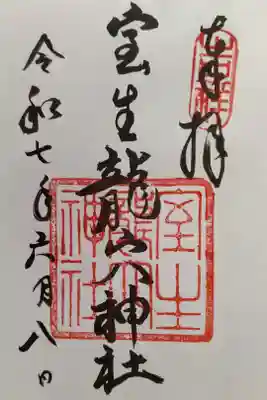 奉拝
室生龍穴神社
室生
龍穴
神社
令和七年六月八日